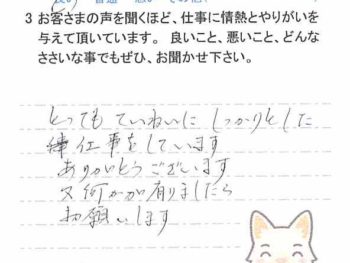 3 お客さまの声を聞くほど、仕事に情熱とやりがいを
与えて頂いています。 良いこと、悪いこと、どんな
ささいな事でもぜひ、お聞かせ下さい。
とっても ていねいに しっかりとした
仕事をしています
ありがとうございます
又何かが有りましたら
お願いします